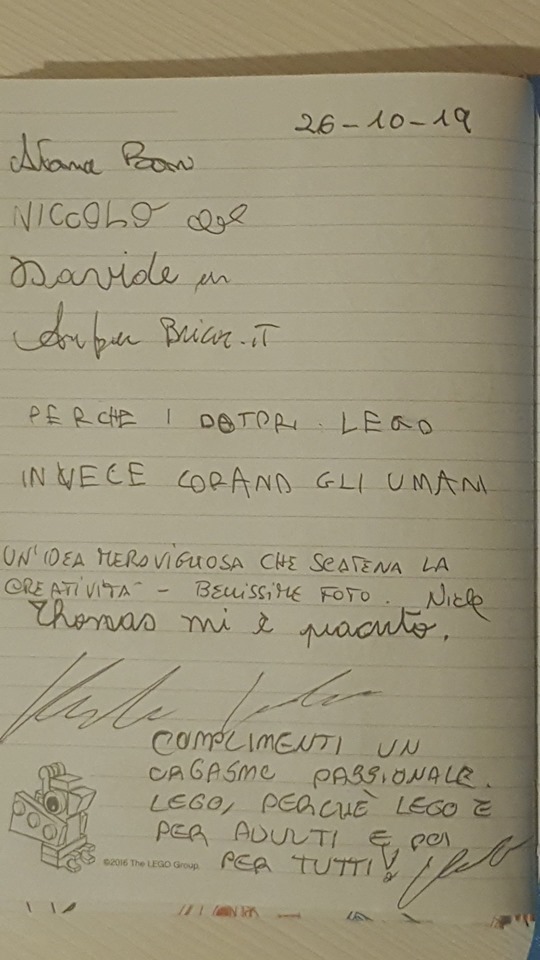 26-10-19
NICCOLO
Davide
Brick.it
PERCHE I DOTORI LEGO
INVECE CORANO GLI UMANI
UN'IDEA MERAVIGLIOSA CHE SCATENA LA
CREATIVITA - BELLISSIME FOTO.
Thomas mi è piaciuto.
COMPLIMENTI UN
PASSIONALE.
LEGO, PERCHÈ LEGO È
PER ADULTI E POI
©2016 The LEGO Group. PER TUTTI!